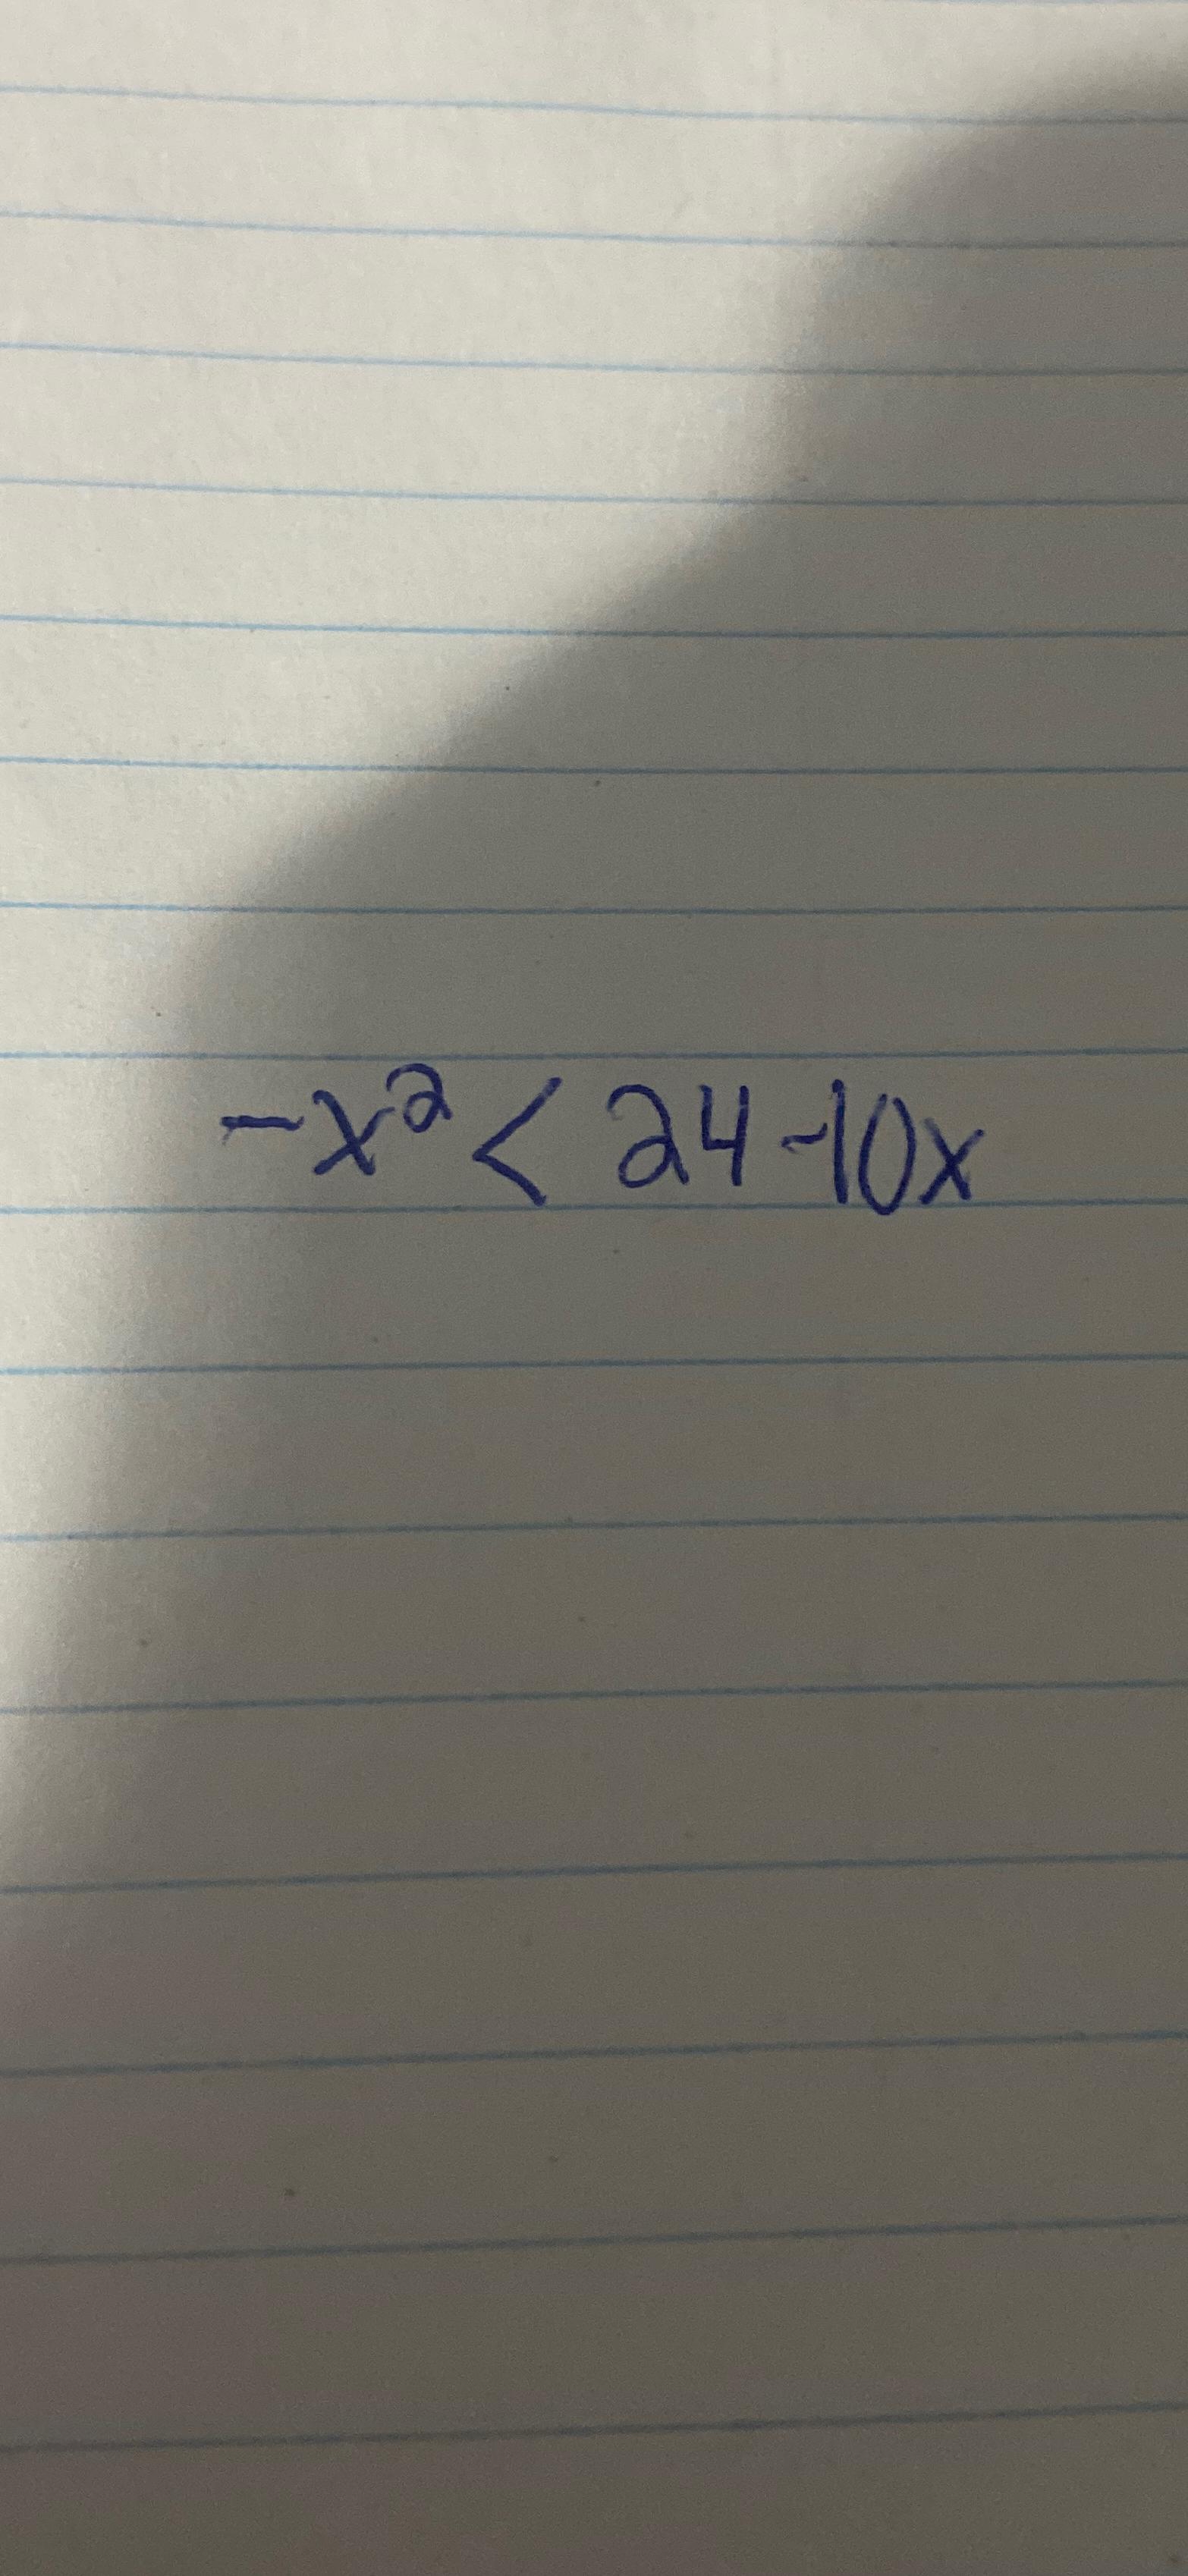 -x² < 24-10x